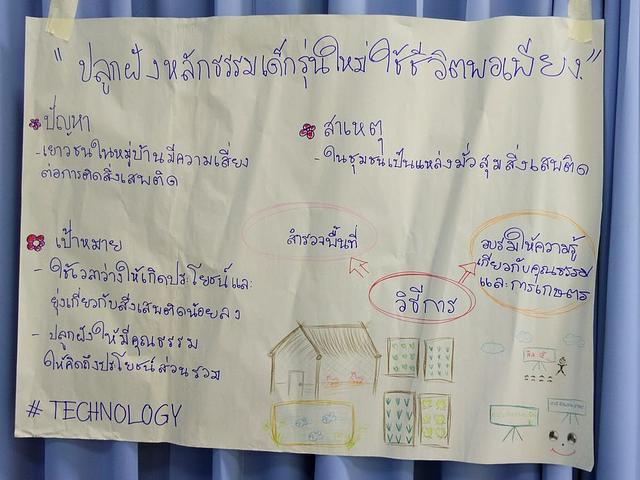 "ปลูกฝังหลักธรรมเด็กรุ่นใหม่ ใช้ชีวิตพอเพียง"
ปัญหา
- เยาวชนในหมู่บ้านมีความเสี่ยง
ต่อการติดสิ่งเสพติด
สาเหตุ
- ในชุมชนเป็นแหล่งมั่วสุมสิ่งเสพติด
เป้าหมาย
- ใช้เวลาว่างให้เกิดประโยชน์และ
ยุ่งเกี่ยวกับสิ่งเสพติดน้อยลง
- ปลูกฝังให้มีคุณธรรม
ให้คิดถึงประโยชน์ส่วนรวม
# TECHNOLOGY
สำรวจพื้นที่
อบรมให้ความรู้
เกี่ยวกับคุณธรรม
และการเกษตร
วิธีการ